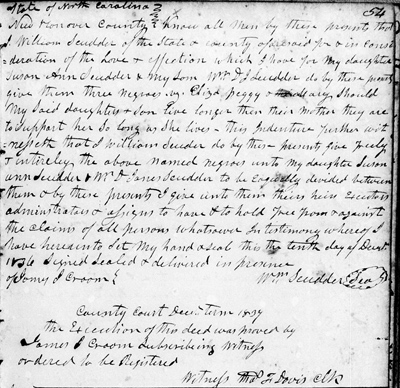 State of North Carolina } 54
New Hanover County } Know all men by these presents that
I William Scudder of the State & county aforesaid for & in consi
deration of the Love & affection which I have for My daughter
Susan Ann Scudder & My Son Wm D J Scudder do by these presents
give them three negroes viz Eliza peggy & Mary Should
My Said daughter & Son live longer than their Mother they are
to Support her So long as She lives - This Indenture further wit
nesseth that I William Scudder do by these presents give freely
& Entirely the above named negroes unto my daughter Susan
ann Scudder & Wm D Jones Scudder to be Equally divided between
them & by these presents I give unto them theirs heirs Executors
administrators & assigns to have & to hold free from & against
the Claims of all persons whatsoever In testimony whereof I
have hereunto Set My hand & Seal this the tenth day of Decr
1836 Signed Sealed & delivered in presence
of James J Croom } Wm Scudder Seal
County Court Decr term 1837
the Execution of this deed was proved by
James J Croom Subscribing Witness
ordered to be Registered
Witness Thos F Davis Clk